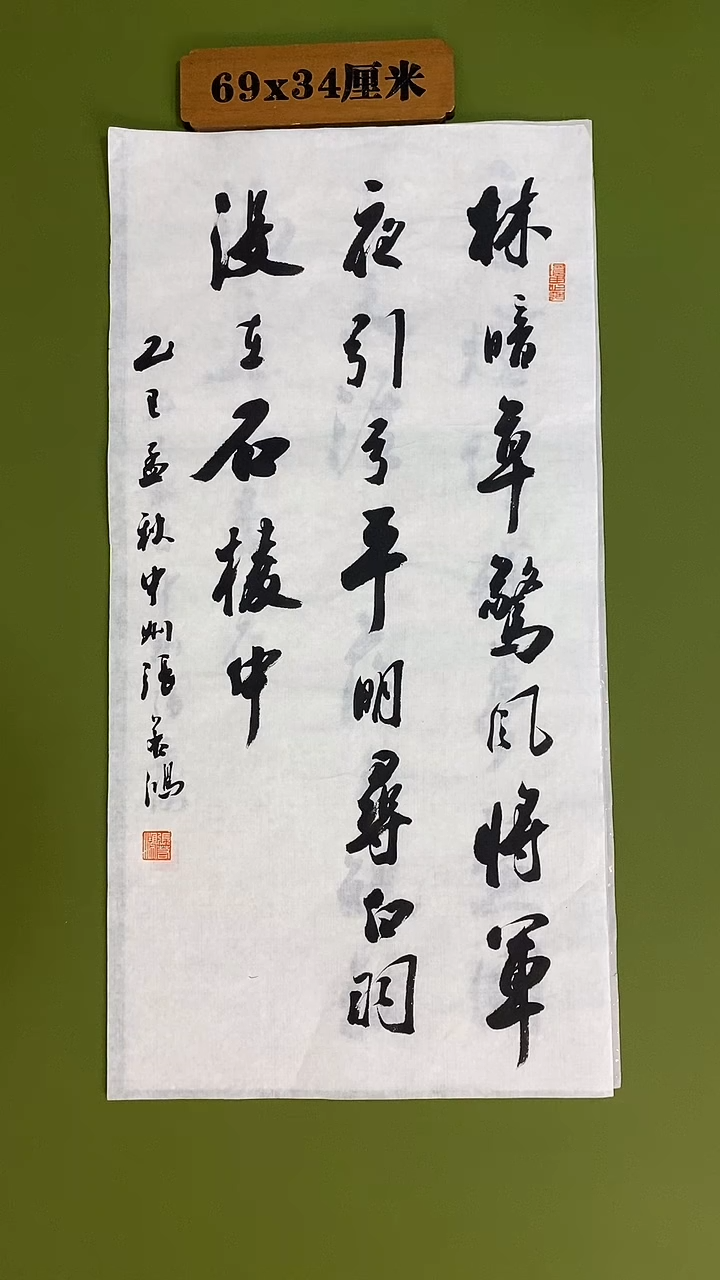 69x34厘米
林暗草驚風將軍
夜引弓平明尋白羽
没在石棱中
乙巳孟秋中州張若鴻